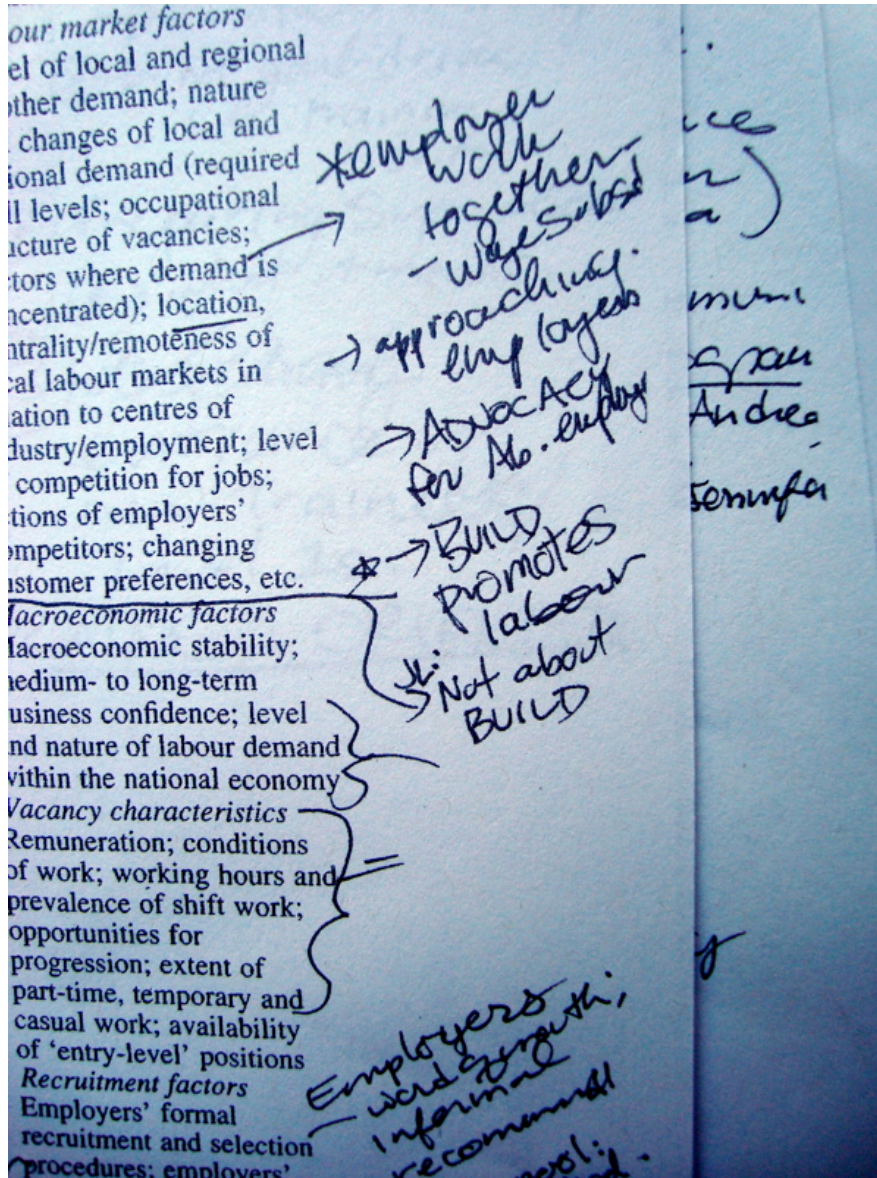 our market factors
el of local and regional
other demand; nature
changes of local and
ional demand (required
ll levels; occupational
ucture of vacancies;
ctors where demand is
ncentrated); location,
ntrality/remoteness of
cal labour markets in
ation to centres of
dustry/employment; level
competition for jobs;
tions of employers'
ompetitors; changing
ustomer preferences, etc.
Macroeconomic factors
Macroeconomic stability;
medium- to long-term
usiness confidence; level
nd nature of labour demand
within the national economy
Vacancy characteristics
Remuneration; conditions
of work; working hours and
prevalence of shift work;
opportunities for
progression; extent of
part-time, temporary and
casual work; availability
of 'entry-level' positions
Recruitment factors
Employers' formal
recruitment and selection
procedures; employers'
*employer
work
together-
- wage subsd
→ approaching
employers
→ ADVOCACY
for Ab. employ
* → BUILD
promotes
labour
Not about
BUILD
Employers
- word of mouth,
informal
recommend
Andrea
Jennifer